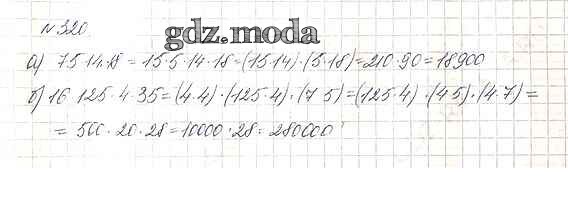 №320
gdz.moda
а) 75·14·18 = 15·5·14·18 = (15·14)·(5·18) = 210·90 = 18900
б) 16·125·4·35 = (4·4)·(125·4)·(7·5) = (125·4)·(4·5)·(4·7) =
= 500·20·28 = 10000·28 = 280000